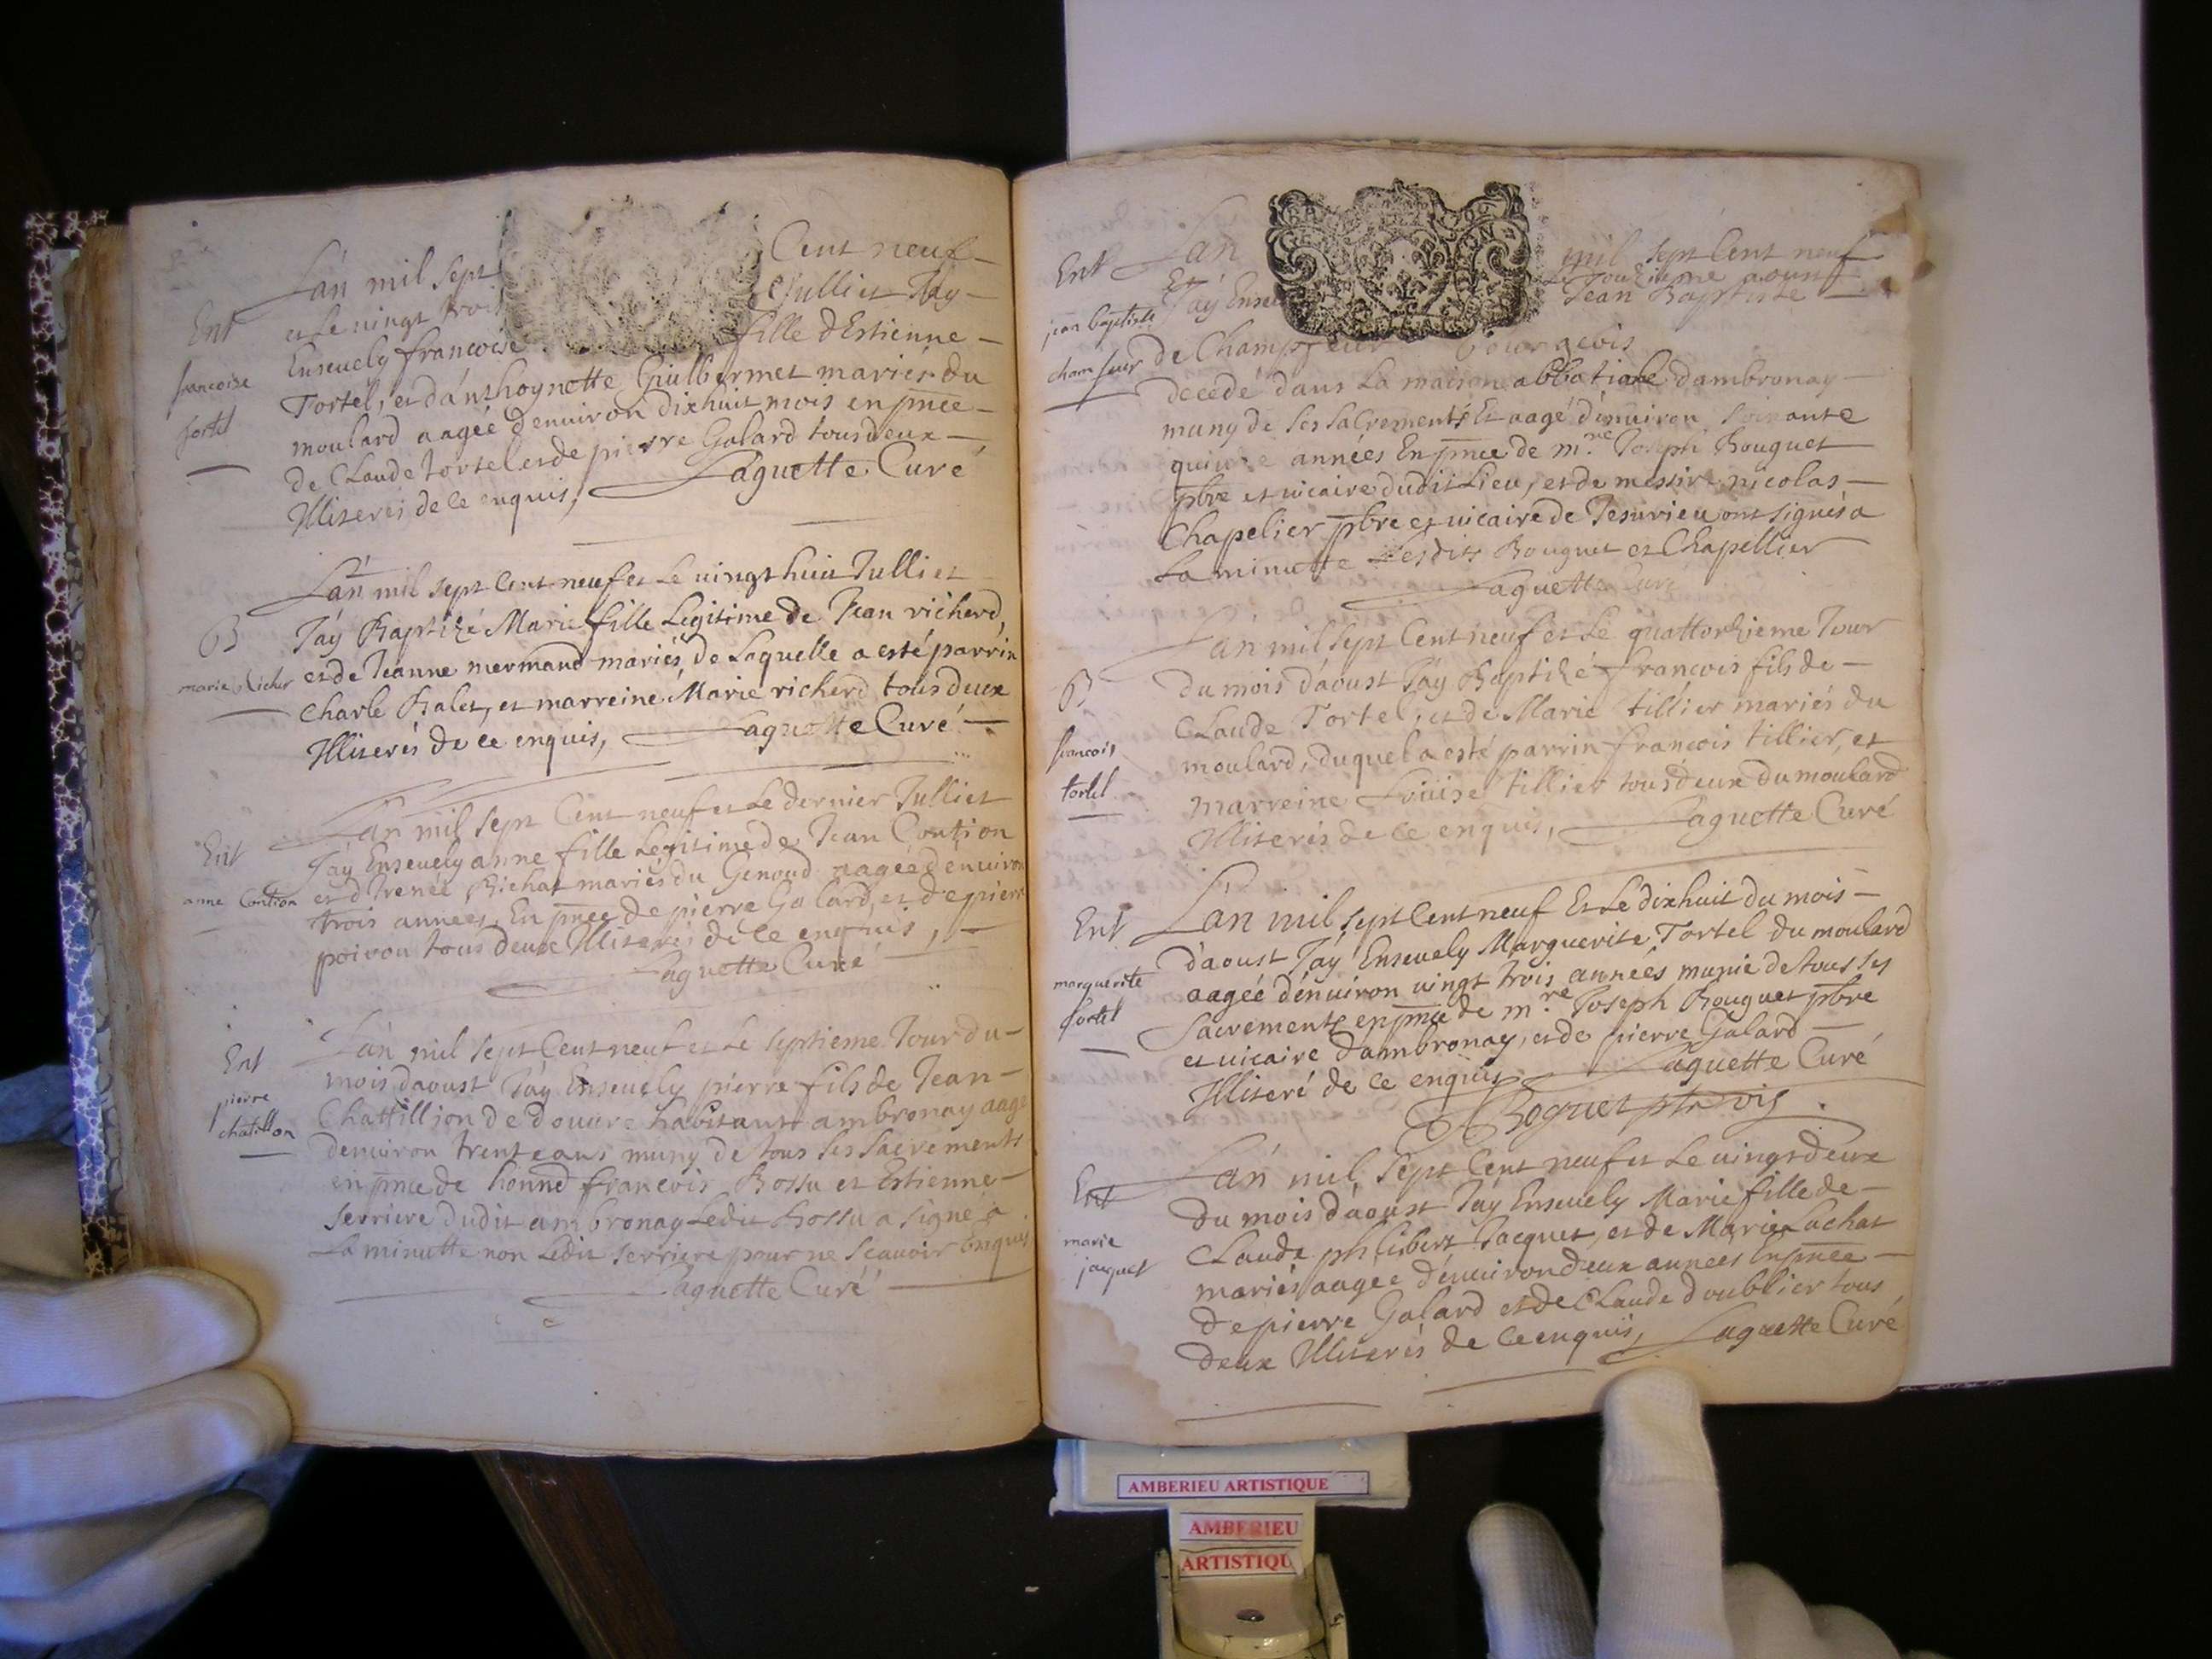 Lán mil sept Cent neuf
Ent et le vingt trois Julliet Jáy
Enseuely francoise fille dEstienne
francoise Tortel, et dánthoynette Guilhermet mariés du
tortel moulard aagée denuiron dixhuit mois en pnce
de Claude tortel et de pierre Galard tous deux
Illiterés de ce enquis, Laguette Curé
Lán mil sept Cent neuf et le uingt huit Julliet
B Jáy Baptizé Marie fille Legitime de Jean richerd,
marie Richer et de Jeanne mermand mariés, de Laquelle a esté parrin
Charle Balet, et marreine Marie richerd tous deux
Illiterés de ce enquis, Laguette Curé
Lán mil sept Cent neuf et Le dernier Julliet
Ent Jáy Enseuely anne fille Legitime de Jean Contion
anne Contion et d Irenée Richat mariés du Genoud aagée denuiron
trois années, En pnce de pierre Galard, et de pierre
poivou tous deux Illiterés de ce enquis,
Laguette Curé
Lán mil sept Cent neuf et Le septieme Jour du
Ent mois daoust Jáy Enseuely pierre fils de Jean
pierre Chattillion de douure habitant ambronay aagé
chatillon denuiron trente ans muny de tous ses sacrements
en pnce de honné francois Bossu et Estienne
serriere dudit ambronay Ledit Bossu a signé à
La minutte non Ledit serriere pour ne scauoir Enquis
Laguette Curé
Ent Lán mil sept Cent neuf
Et Le douzieme aoust
jean baptiste Jáy Ense Jean Baptiste
chamfleur de Champfleur bourgeois
decedé dans La maison abbatiale dambronay
muny de ses sacrements Et aagé dénuiron soixante
quinze années En pnce de mre Joseph Bouguet
pbre et uicaire dudit Lieu, et de messire nicolas
Chapelier pbre et uicaire de Jesurieu ont signés a
La minutte Lesdits Bouguet et Chapellier
Laguette Curé
Lán mil sept Cent neuf et Le quattorzieme Jour
B du mois dáoust Jáy Baptizé francois fils de
francois Claude Tortel, et de Marie tillier mariés du
tortel moulard, duquel a esté parrin francois tillier, et
marreine Louise tillier tous deux du moulard
Illiterés de ce enquis, Laguette Curé
Lán mil sept Cent neuf Et Le dixhuit du mois
Ent dáoust Jáy Enseuely Marguerite Tortel du moulard
marguerite aagée dénuiron uingt trois années munie de tous ses
tortel sacrements en pnce de mre Joseph Bouguet pbre
et uicaire dambronay, et de pierre Galard
Illiteré de ce enquis, Laguette Curé
Boguet ptr vig
Lán mil sept Cent neuf et Le uingtdeux
Ent du mois dáoust Jáy Enseuely Marie fille de
marie Claude philibert Jacquet, et de Marie Lachat
jacquet mariés aagée dénuiron deux années En pnce
de pierre Galard et de Claude doublier tous
deux Illiterés de ce enquis, Laguette Curé
AMBERIEU ARTISTIQUE
AMBERIEU
ARTISTIQU